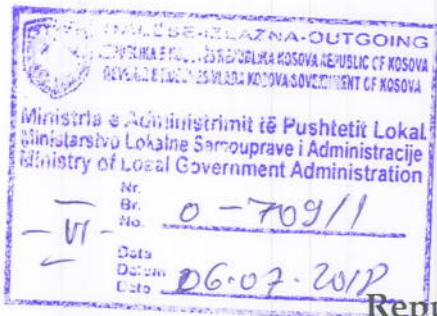 DALËSE-IZLAZNA-OUTGOING
REPUBLIKA E KOSOVËS REPUBLIKA KOSOVA REPUBLIC OF KOSOVA
QEVERIA E KOSOVËS VLADA KOSOVA GOVERNMENT OF KOSOVA
Ministria e Administrimit të Pushtetit Lokal
Ministarstvo Lokalne Samouprave i Administracije
Ministry of Local Government Administration
Nr.
Br.
No. 0-709/1
- VI -
Data
Datum
Date 06.07.2018
Repu